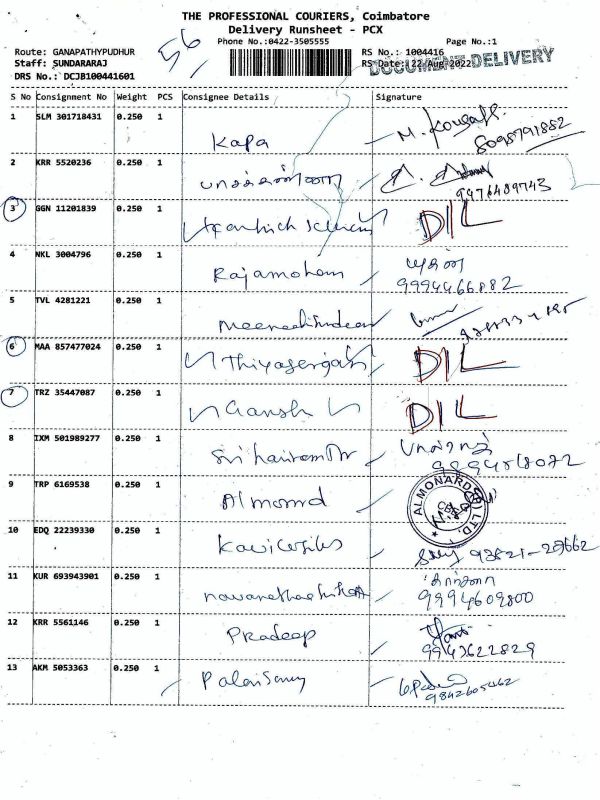 THE PROFESSIONAL COURIERS, Coimbatore
Delivery Runsheet - PCX
56
Phone No.:0422-3505555
Page No.:1
Route: GANAPATHYPUDHUR
RS No.: 1004416
Staff: SUNDARARAJ
RS Date: 22 Aug 2022
DOCUMENT DELIVERY
DRS No.: DCJB100441601
S No Consignment No Weight PCS Consignee Details Signature
1 SLM 301718431 0.250 1 Kapa M. 8098791882
2 KRR 5520236 0.250 1 9976489743
3 GGN 11201839 0.250 1 D/L
4 NKL 3004796 0.250 1 Rajamohan 9994466882
5 TVL 4281221 0.250 1
6 MAA 857477024 0.250 1 D/L
7 TRZ 35447087 0.250 1 Ganesh D/L
8 IXM 501989277 0.250 1
9 TRP 6169538 0.250 1 Almonrd
ALMONARD (P) LTD.
10 EDQ 22239330 0.250 1
11 KUR 693943901 0.250 1 9994609800
12 KRR 5561146 0.250 1 Pradeep 9943622829
13 AKM 5053363 0.250 1 Palanisamy 9842605462